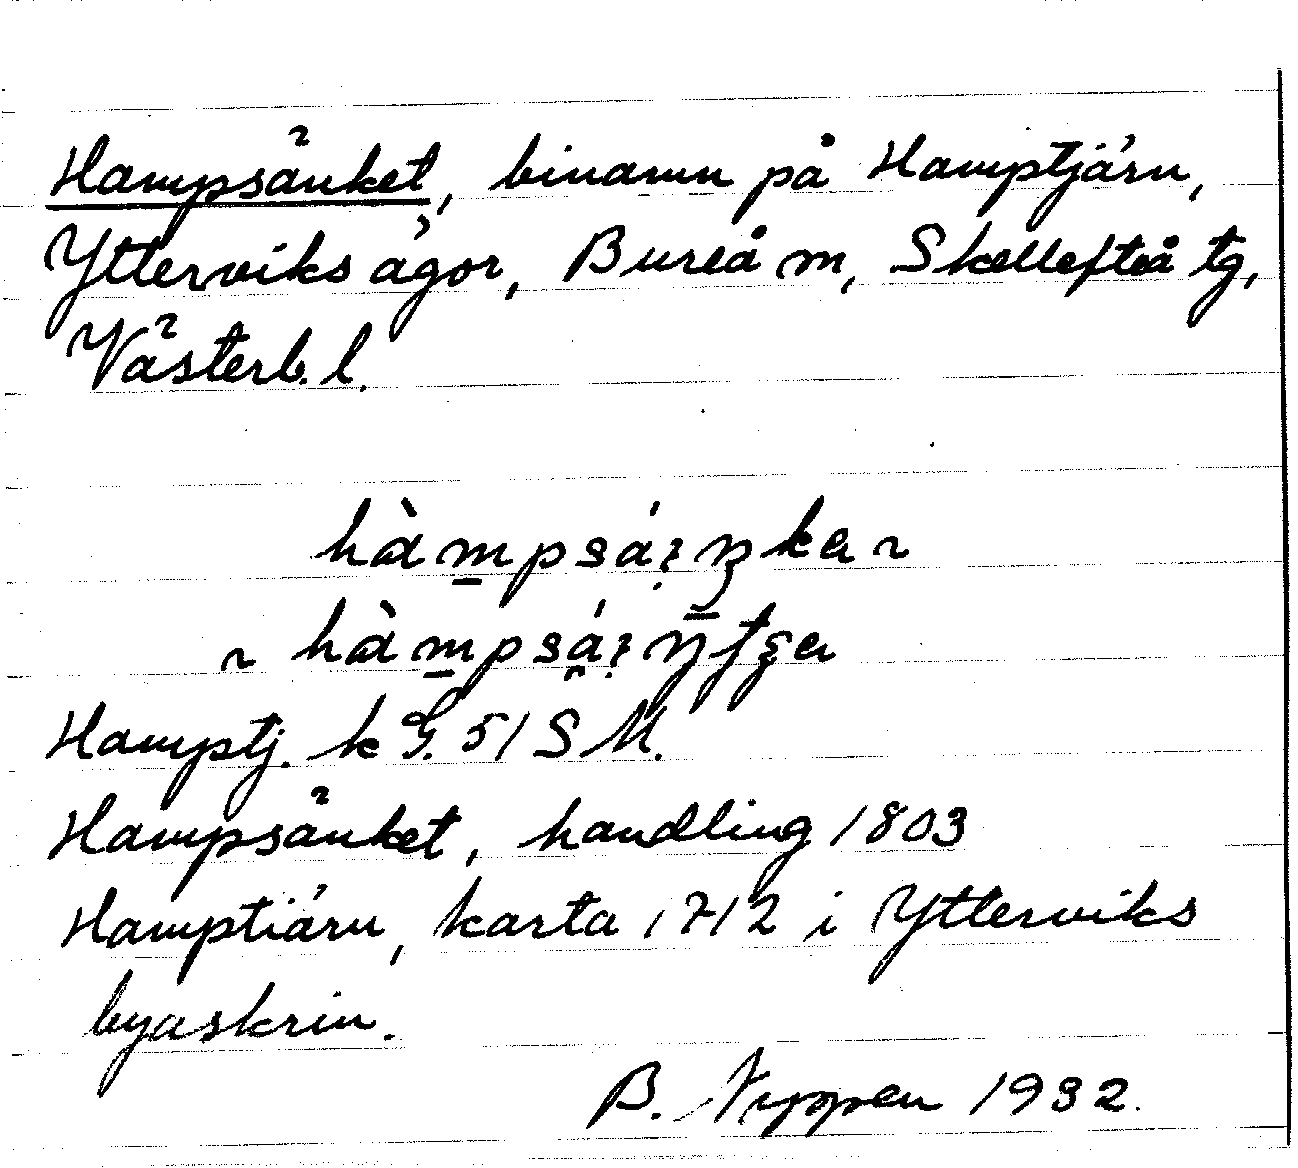 Hampsänket, binamn på Hamptjärn,
Ytterviks ägor, Bureå m, Skellefteå tg,
Västerb. l.
hàmpsáꞛŋka ~
~ hàmpsáꞛŋʈʂa
Hamptj. k G. 51 S M.
Hampsänket, handling 1803
Hamptiärn, karta 1712 i Ytterviks
byaskrin.
B. 1932.